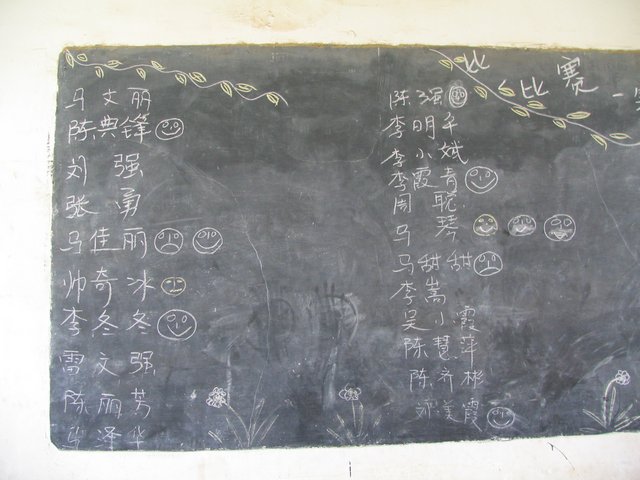 比一比 赛一
马文丽
陈典锋
刘强
张勇
马佳丽
帅奇冰
李冬冬
雷文强
陈丽芳
华泽华
陈强
李明千
李小斌
李霞青
周聪
马琴
马甜甜
李嵩
吴小霞
陈慧萍
陈齐彬
邓美霞